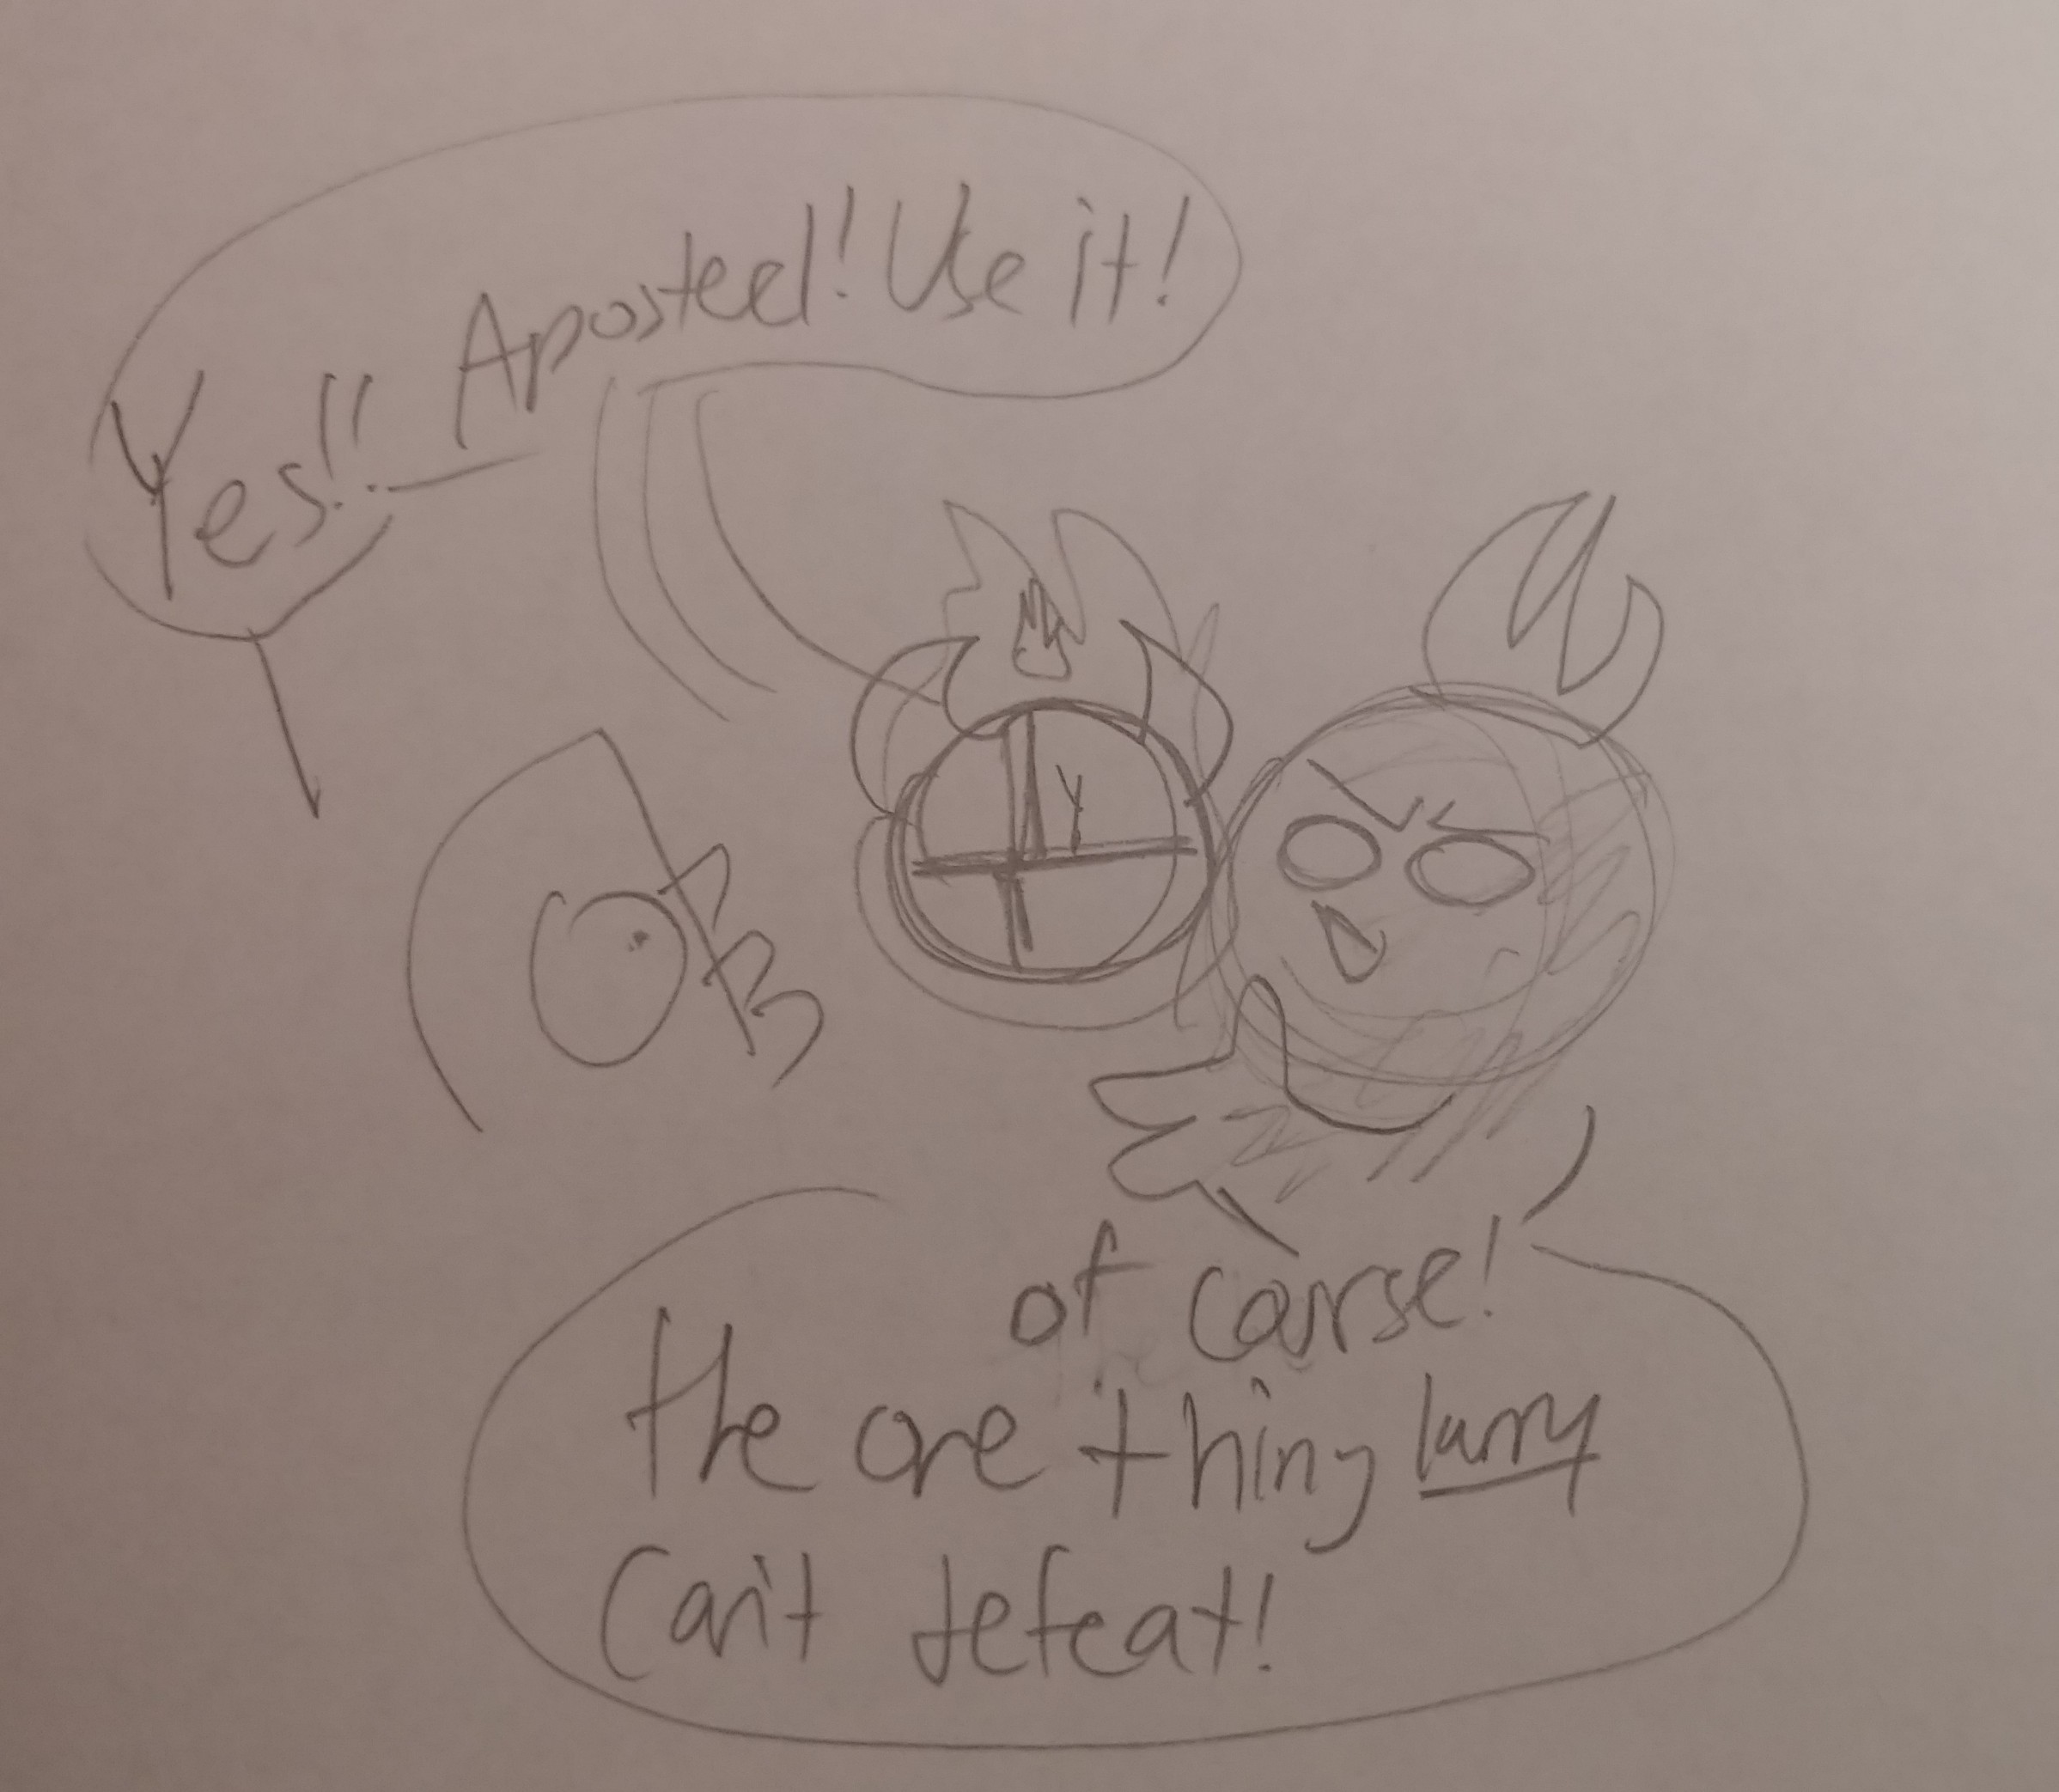 Yes!! Aposteel! Use it!
of course!
the one thing larry
can't defeat!